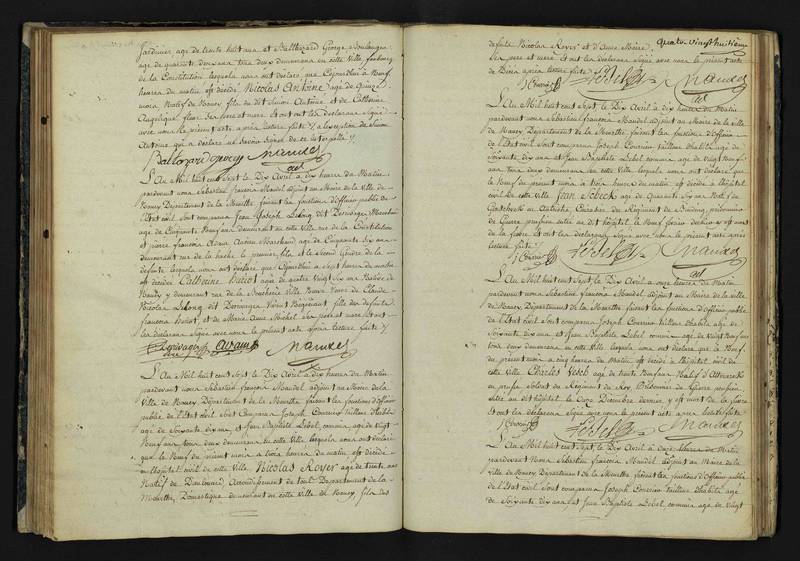 Jardinier age de trente huit ans et Balthazard George Boulanger
age de quarante deux ans tous deux demeurant en cette Ville, faubourg
de la Constitution lesquels nous ont declare que Cejourdhui a Neuf
heures du matin est décédé Nicolas Antoine agé de Quinze
mois, Natif de Nancy fils du dit Simon Antoine, et de Catherine
Angelique fleur ses pere et mere et ont les declarans Signé
avec nous le présent acte, après lecture faite, a l'exception de Simon
Antoine qui a declaré ne savoir signer de ce interpellé
Baltazard george Mandel
adt
L'An Mil huit cent Sept, le Dix Avril a dix heures du Matin
pardevant nous Sebastien françois Mandel adjoint au Maire de la Ville de
Nancy Département de la Meurthe faisant les fonctions d'officier public de
l'Etat civil Sont comparus Jean Joseph Lelong dit Dervange Marchand
agé de Cinquante Neuf ans demeurant en cette Ville rue de la Constitution
et pierre françois Adam Avance Marchand agé de Cinquante six ans
demeurant rue de la hache le premier fils et le Second Gendre de la
defunte lesquels nous ont declare que Cejourdhui a Sept heures du matin
est décédée Catherine Huiot agée de quatre Vingt Six ans Native de
Nancy, y demeurant rue de la Boucherie Ville Neuve Veuve de Claude
Nicolas Lelong dit Dervange Vivant Negociant, fille des defunts
francois Huiot, et de Marie Anne Michel ses pere et mere et ont
les declarans Signé avec nous le présent acte après lecture faite
Mandel
L'An Mil huit cent Sept, le Dix Avril a dix heures du Matin
pardevant nous Sebastien françois Mandel adjoint au Maire de la
Ville de Nancy, Département de la Meurthe faisant les fonctions d'officier
public de l'Etat civil Sont Comparus Joseph Couvrier tailleur d'habits
age de Soixante dix ans et Jean Baptiste Lebel, commis agé de Vingt
Neuf ans tous deux demeurant en cette Ville lesquels nous ont declare
que le Neuf du présent mois a trois heures du matin est décédé
en l'hopital civil de cette Ville Nicolas Royer agé de trente ans
Natif de Dieulouard Arrondissement de toul Département de la
Meurthe, Domestique demeurant en cette Ville de Nancy, fils des
quatre vingt huitieme
defunts Nicolas Royer et d'Anne Moire
Ses pere et mere et ont les declarans Signé avec nous le présent acte
de Décès après lecture faite
J Couvrier Lebel Mandel
adt
L'An Mil huit cent Sept, le Dix Avril a dix heures du Matin
pardevant nous Sebastien françois Mandel adjoint au Maire de la Ville
de Nancy Département de la Meurthe faisant les fonctions d'officier
de l'Etat civil Sont comparus Joseph Couvrier tailleur d'habits agé de
Soixante dix ans et Jean Baptiste Lebel commis agé de Vingt Neuf
ans tous deux demeurant en cette Ville lesquels nous ont declare que
le Neuf du présent mois a trois heures du matin est décédé a l'hopital
civil de cette Ville Jean agé de Quarante Six ans Natif de
en Autriche, Cuirassier du Régiment de prisonnier
de Guerre
de la fievre et ont les declarans Signé avec nous le présent acte après
lecture faite
J Couvrier Lebel Mandel
adt
L'An Mil huit cent Sept, le Dix Avril a onze heures du Matin
pardevant nous Sebastien françois Mandel adjoint au Maire de la ville
de Nancy, Département de la Meurthe faisant les fonctions d'officier public
de l'Etat civil Sont comparus Joseph Couvrier tailleur d'habits agé de
Soixante dix ans et Jean Baptiste Lebel commis agé de Vingt Neuf ans
tous deux demeurant en cette Ville lesquels nous ont declaré que le Neuf
du présent mois a cinq heures du matin est décédé a l'hopital civil de
cette Ville Charles agé de trente Neuf ans Natif
en prusse Soldat du Régiment du Roy, Prisonnier de Guerre prussien
entré au dit hopital le Onze Décembre dernier, y est mort de la fievre
et ont les declarans Signé avec nous le présent acte après lecture faite
J Couvrier Lebel Mandel
adt
L'An Mil huit cent Sept le Dix Avril a onze heures du Matin
pardevant Nous Sebastien françois Mandel adjoint au Maire de la Ville
de Nancy, Département de la Meurthe, faisant les fonctions d'officier public
de l'Etat civil Sont comparus Joseph Couvrier tailleur d'habits agé
de Soixante dix ans, et Jean Baptiste Lebel commis agé de Vingt